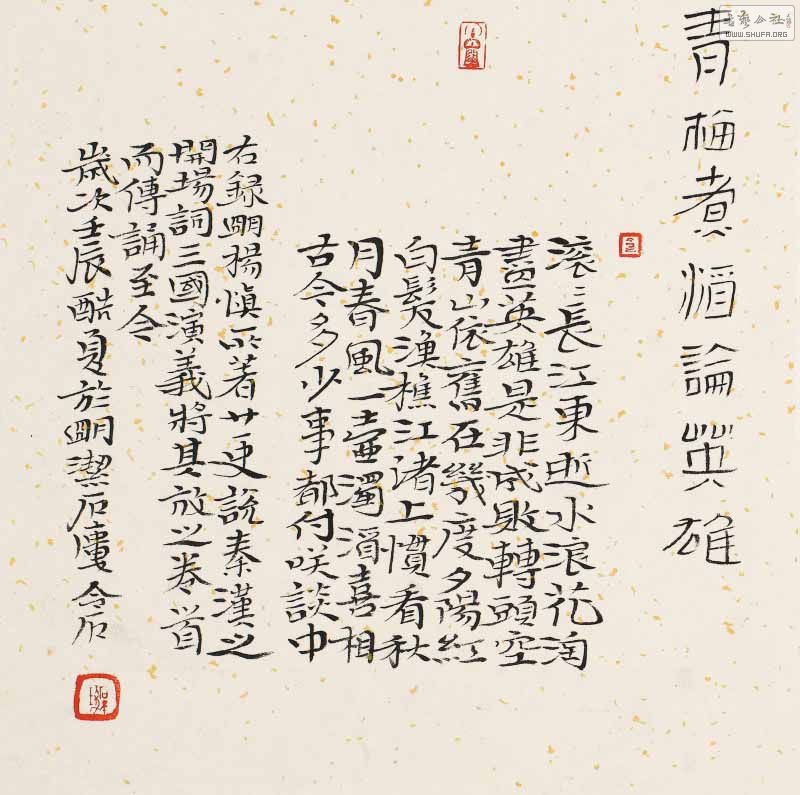 青梅煮酒論英雄
滚〻長江東逝水浪花淘
盡英雄是非成敗轉頭空
青山依舊在幾度夕陽紅
白髮漁樵江渚上慣看秋
月春風一壺濁酒喜相
古今多少事都付咲談中
右録明楊慎所著廿一史説秦漢之
開場詞三國演義將其放之卷首
而傳誦至今
歲次壬辰酷夏於明潔石廔令石
WWW.SHUFA.ORG